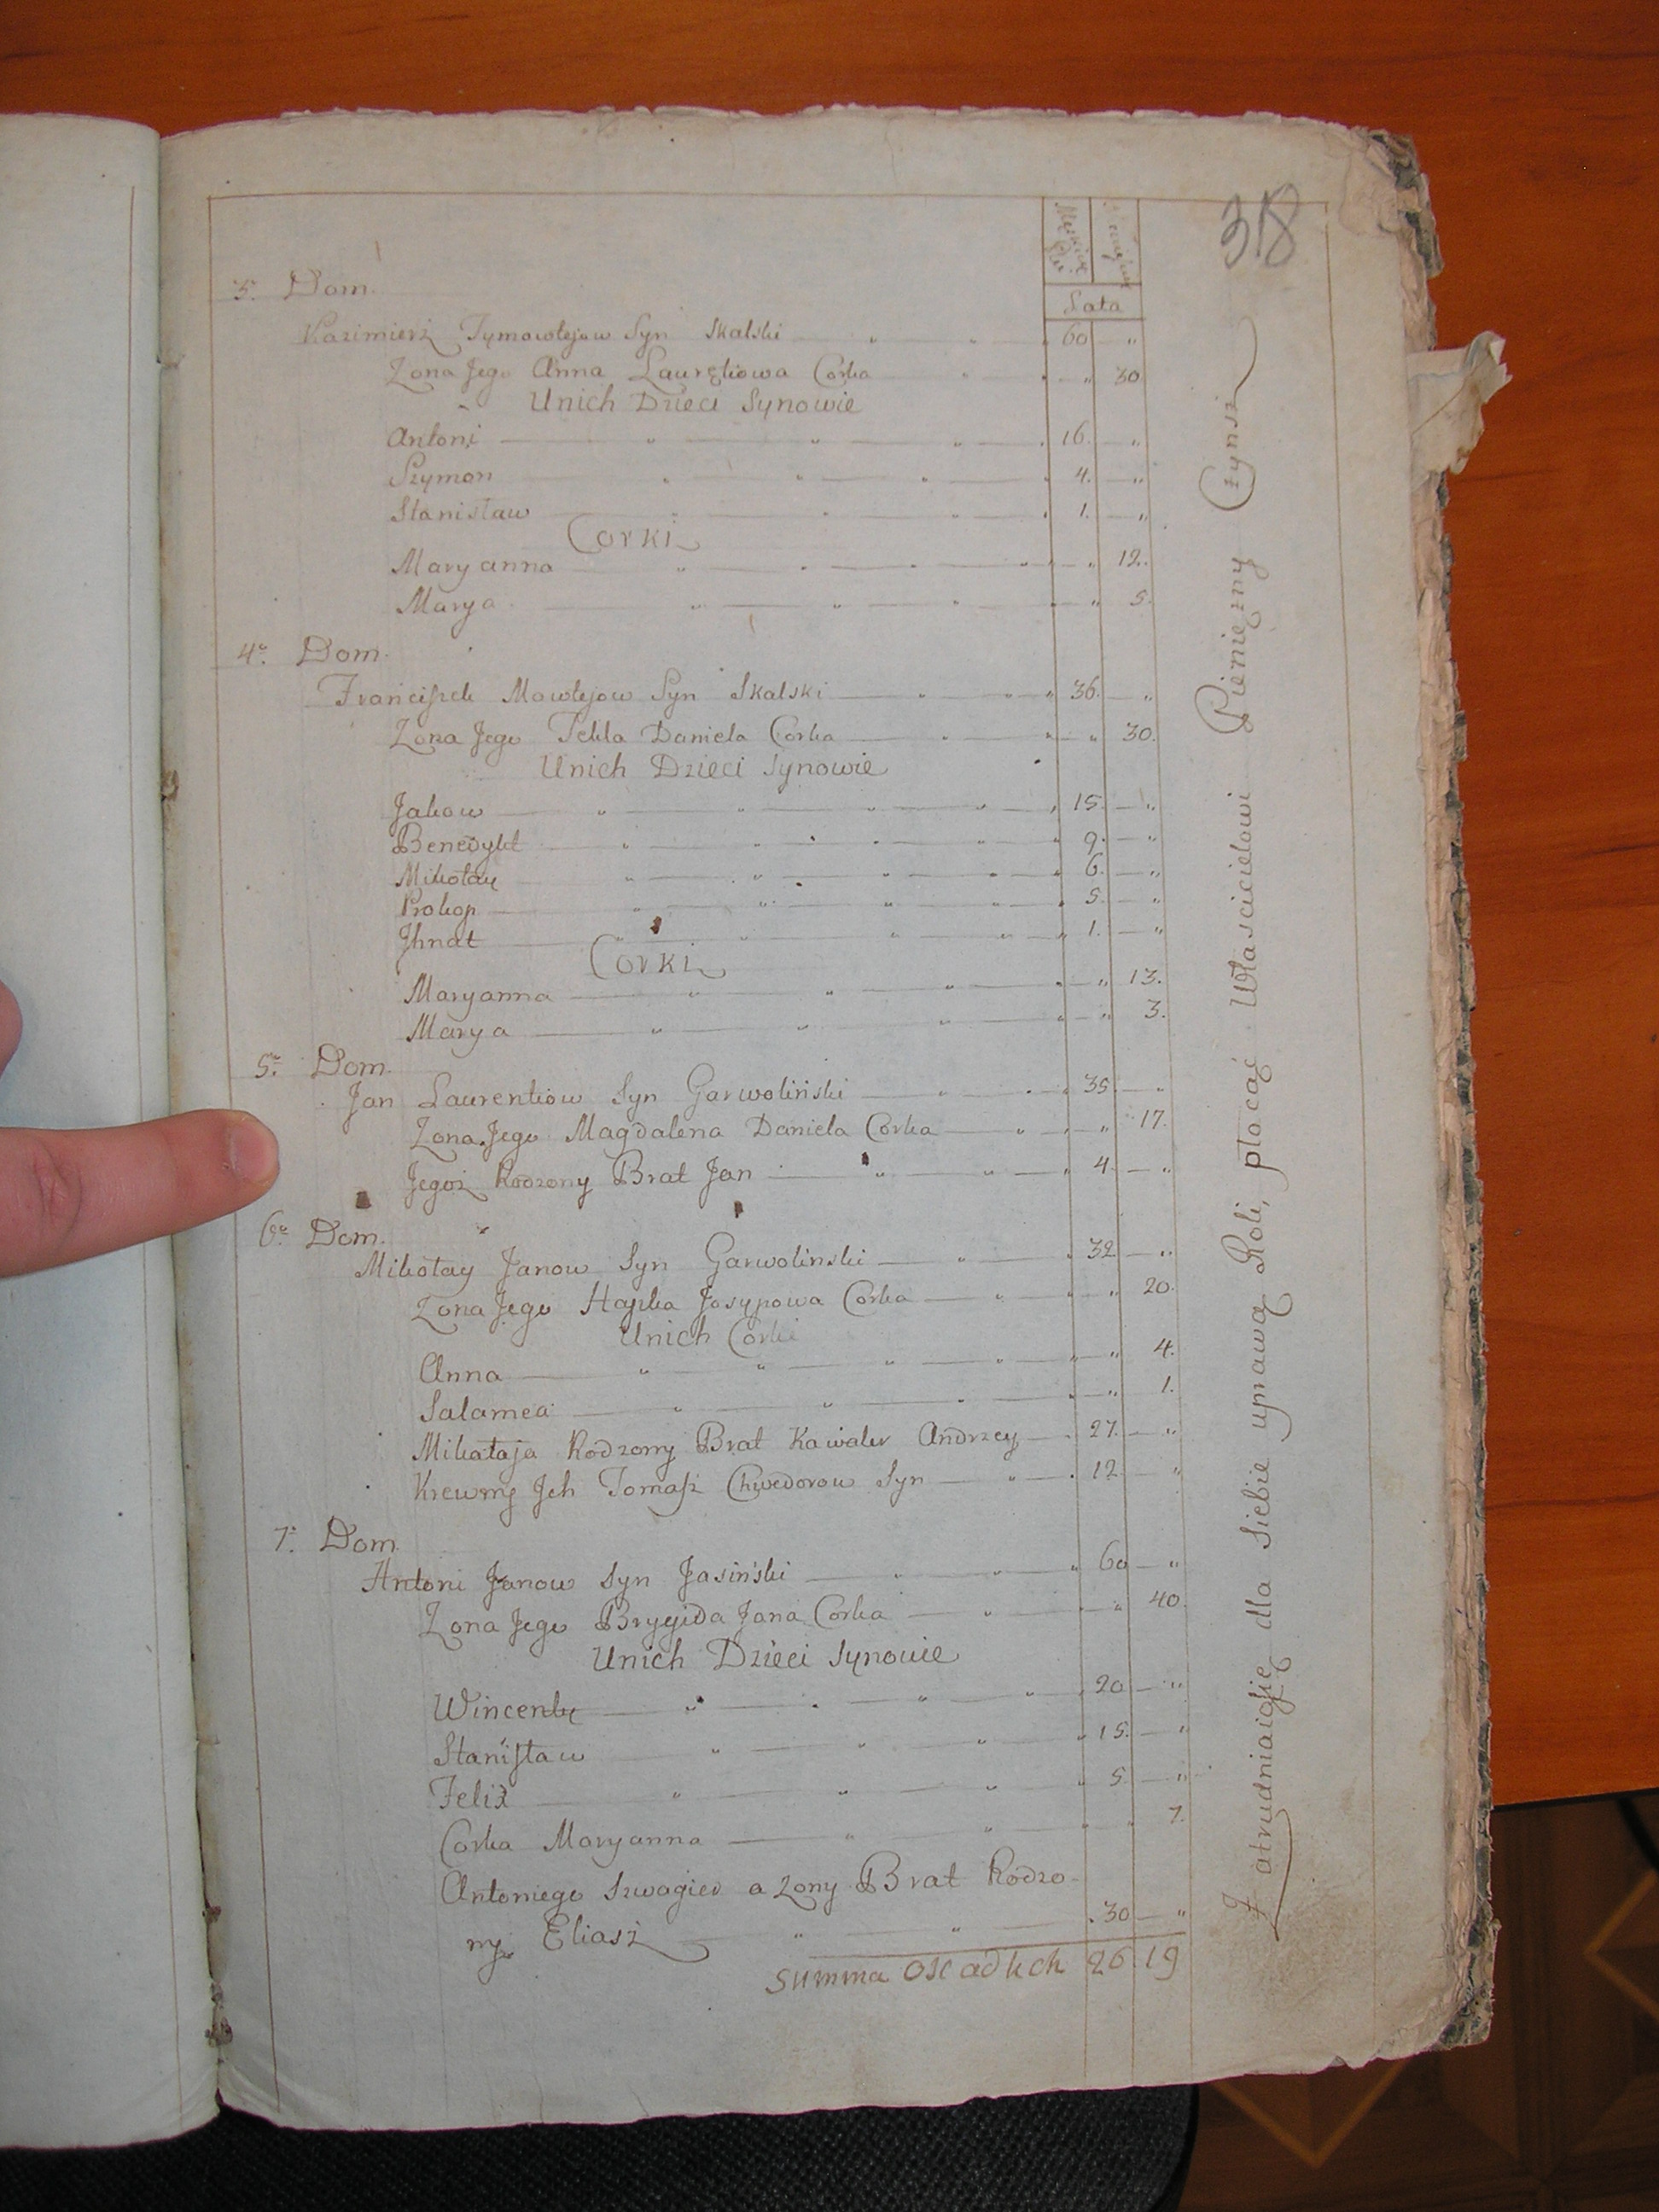 318
Lata
3. Dom.
Kazimierz Tymowtejow Syn Skalski 60 "
Zona Jego Anna Lauretiowa Corka " 30
Unich Dzieci Synowie
Antoni 16. "
Szymon 4. "
Stanisław 1. "
Corki
Maryanna " 12.
Marya " 5.
4. Dom.
Franciszek Mowtejow Syn Skalski 36. "
Zona Jego Tekla Daniela Corka " 30.
Unich Dzieci Synowie
Jakow 15. "
Benedykt 9. "
Mikołay 6. "
Prokop 5. "
Jhnat 1. "
Corki
Maryanna " 13.
Marya " 3.
5. Dom.
Jan Laurentiow Syn Garwoliński 35. "
Zona Jego Magdalena Daniela Corka " 17.
Jegoż Rodzony Brat Jan 4. "
6. Dom.
Mikołay Janow Syn Garwolinski 32. "
Zona Jego Josypowa Corka " 20.
Unich Corki
Anna " 4.
Salamea " 1.
Mikołaja Rodzony Brat Kawaler Andrzey 27. "
Krewny Jch Tomasz Chwedorow Syn 12 "
7. Dom
Antoni Janow Syn Jasiński 60 "
Zona Jego Brygida Jana Corka " 40.
Unich Dzieci Synowie
Wincenty 20 "
Stanisław 15. "
Felix 5 "
Corka Maryanna " 7.
Antoniego Szwagier a Zony Brat Rodzo-
ny Eliasz 30 "
summa 26. 19
Zatrudniaią się dla siebie uprawą Roli, płacąc Właścicielowi Pieniężny Czynsz